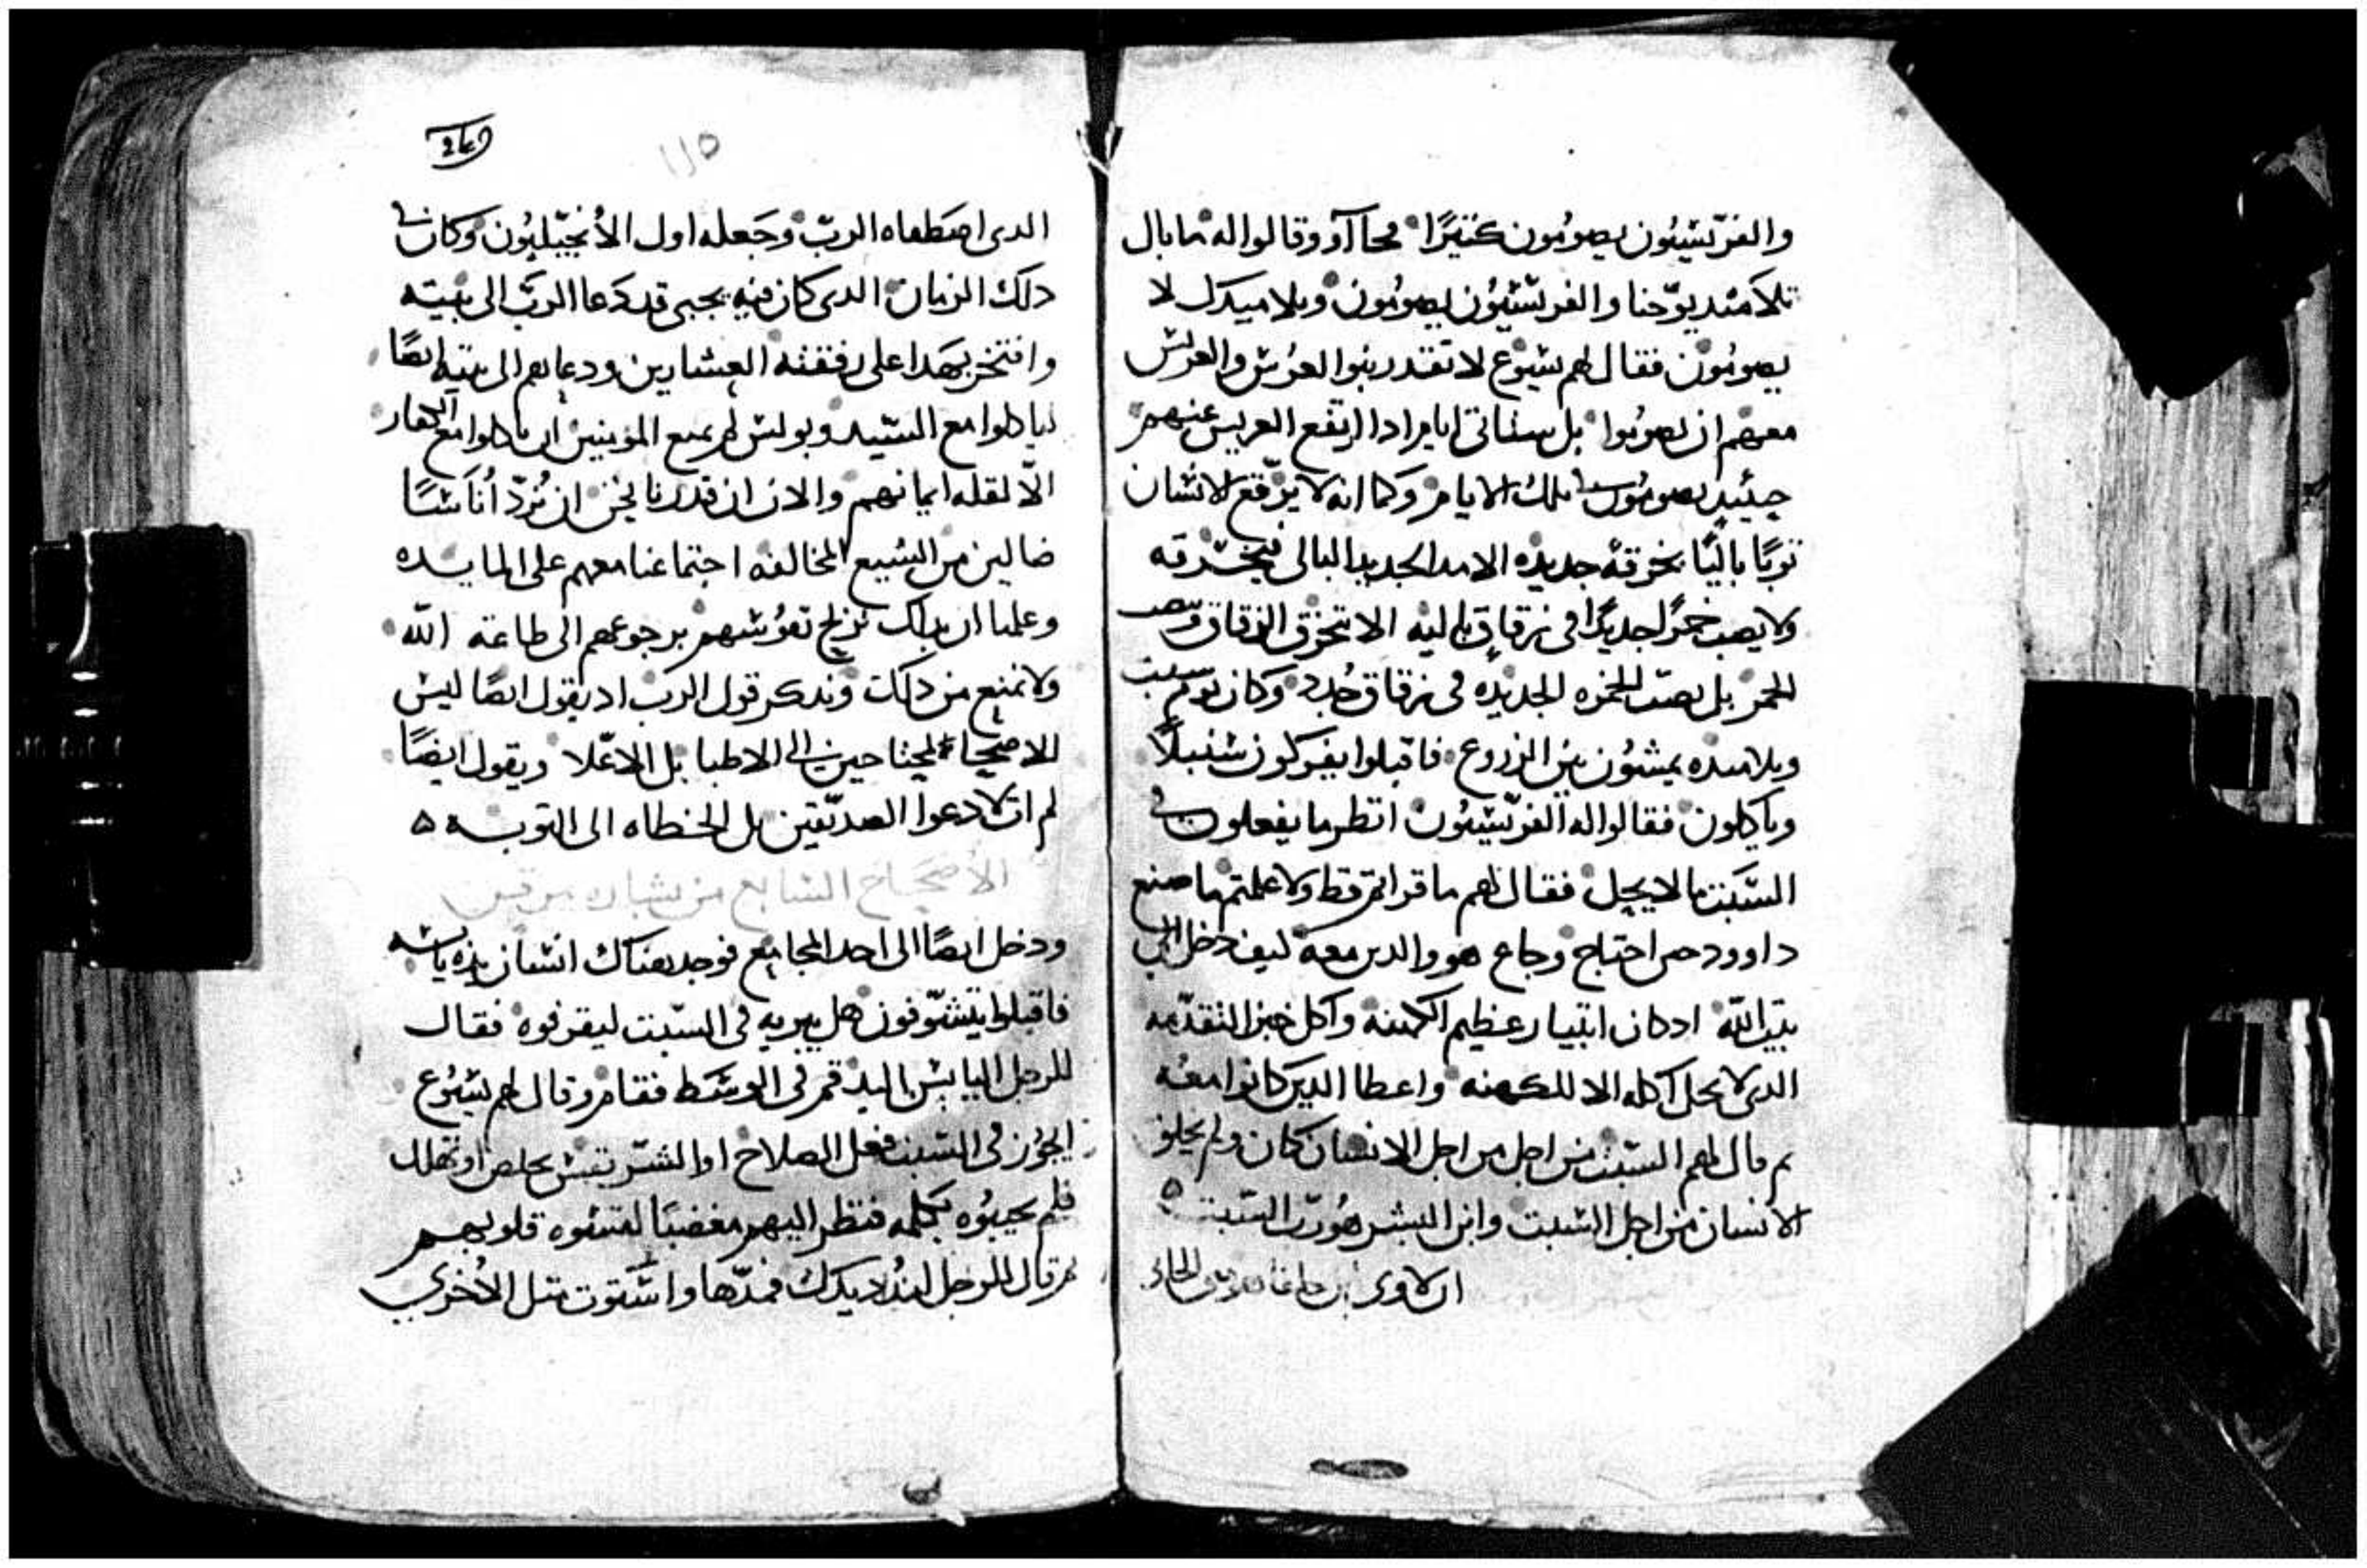 والفرّيسيون يصومون كثيرًا فجاآو وقالوا له ما بال
تلاميد يوحنا والفريسيون يصومون وتلاميدك لا
يصومون فقال لهم يسوع لا تقدر بنوا العرس والعريس
معهم ان يصوموا بل ستاتي ايام ادا ارتفع العريس عنهم
حينيد يصومون تلك الايام وكما انه لا يرقع الانسان
توبًا باليًا بخرقة جديده الا مد الجديد البالي فيخرقه
ولا يصب خمرًا جديدًا في زقاق باليه الا تتخرق الزقاق
الخمر بل تصب الخمره الجديده في زقاق جدد وكان يوم سبت
وتلاميده يمشون بين الزروع فاقبلوا يفركون سنبلاً
وياكلون فقالوا له الفريسيون انظر ما يفعلون في
السبت ما لا يحل فقال لهم ما قراتم قط ولا علمتم ما صنع
داوود حين احتاج وجاع هو والدين معه كيف دخل الي
بيت الله ادكان ابيتار عظيم الكهنه واكل خبز التقدمه
الدي لا يحل اكله الا للكهنه واعطا الدين كانوا معه
تم قال لهم السبت من اجل الانسان كان ولم يخلق
الانسان من اجل السبت وابن البشر هو رب السبت
249
١١٥
الدي اصطفاه الرب وجعله اول الانجيليون وكان في
دلك الزمان الدي كان فيه يجبي قد دعا الرب الى بيته
وافتخر بهدا على رفقته العشارين ودعاهم الى بيته ايضًا
لياكلوا مع السيد وبولس لم يمنع المومنين ان ياكلوا مع الكفار
الا لقلة ايمانهم والان ان قدرنا نحن ان نرد أناسًا
ضالين من الشيع المخالفه اجتماعنا معهم على المايده
وعلمنا ان بدلك نربح نفوسهم برجوعهم الى طاعة الله
ولا نمنع من دلك وندكر قول الرب اد يقول ايضًا ليس
الاصحيا محتاجين الى الاطبا بل الاعلا ويقول ايضًا
لم ات لادعوا الصديقين بل الخطاه الى التوبه
الاصحاح السابع من بشارة مرقس
ودخل ايضًا الى احد المجامع فوجد هناك انسان يده يابسه
فاقبلوا يتشوفون هل يبريه في السبت ليقرفوه فقال
للرجل اليابس اليد قم في الوسط فقام وقال لهم يسوع
ايجوز في السبت فعل الصلاح او الشر نفس تخلص او تهلك
فلم يجيبوه بكلمه فنظر اليهم مغضبًا لقسوه قلوبهم
تم قال للرجل امدد يدك فمدها واستوت متل الاخري